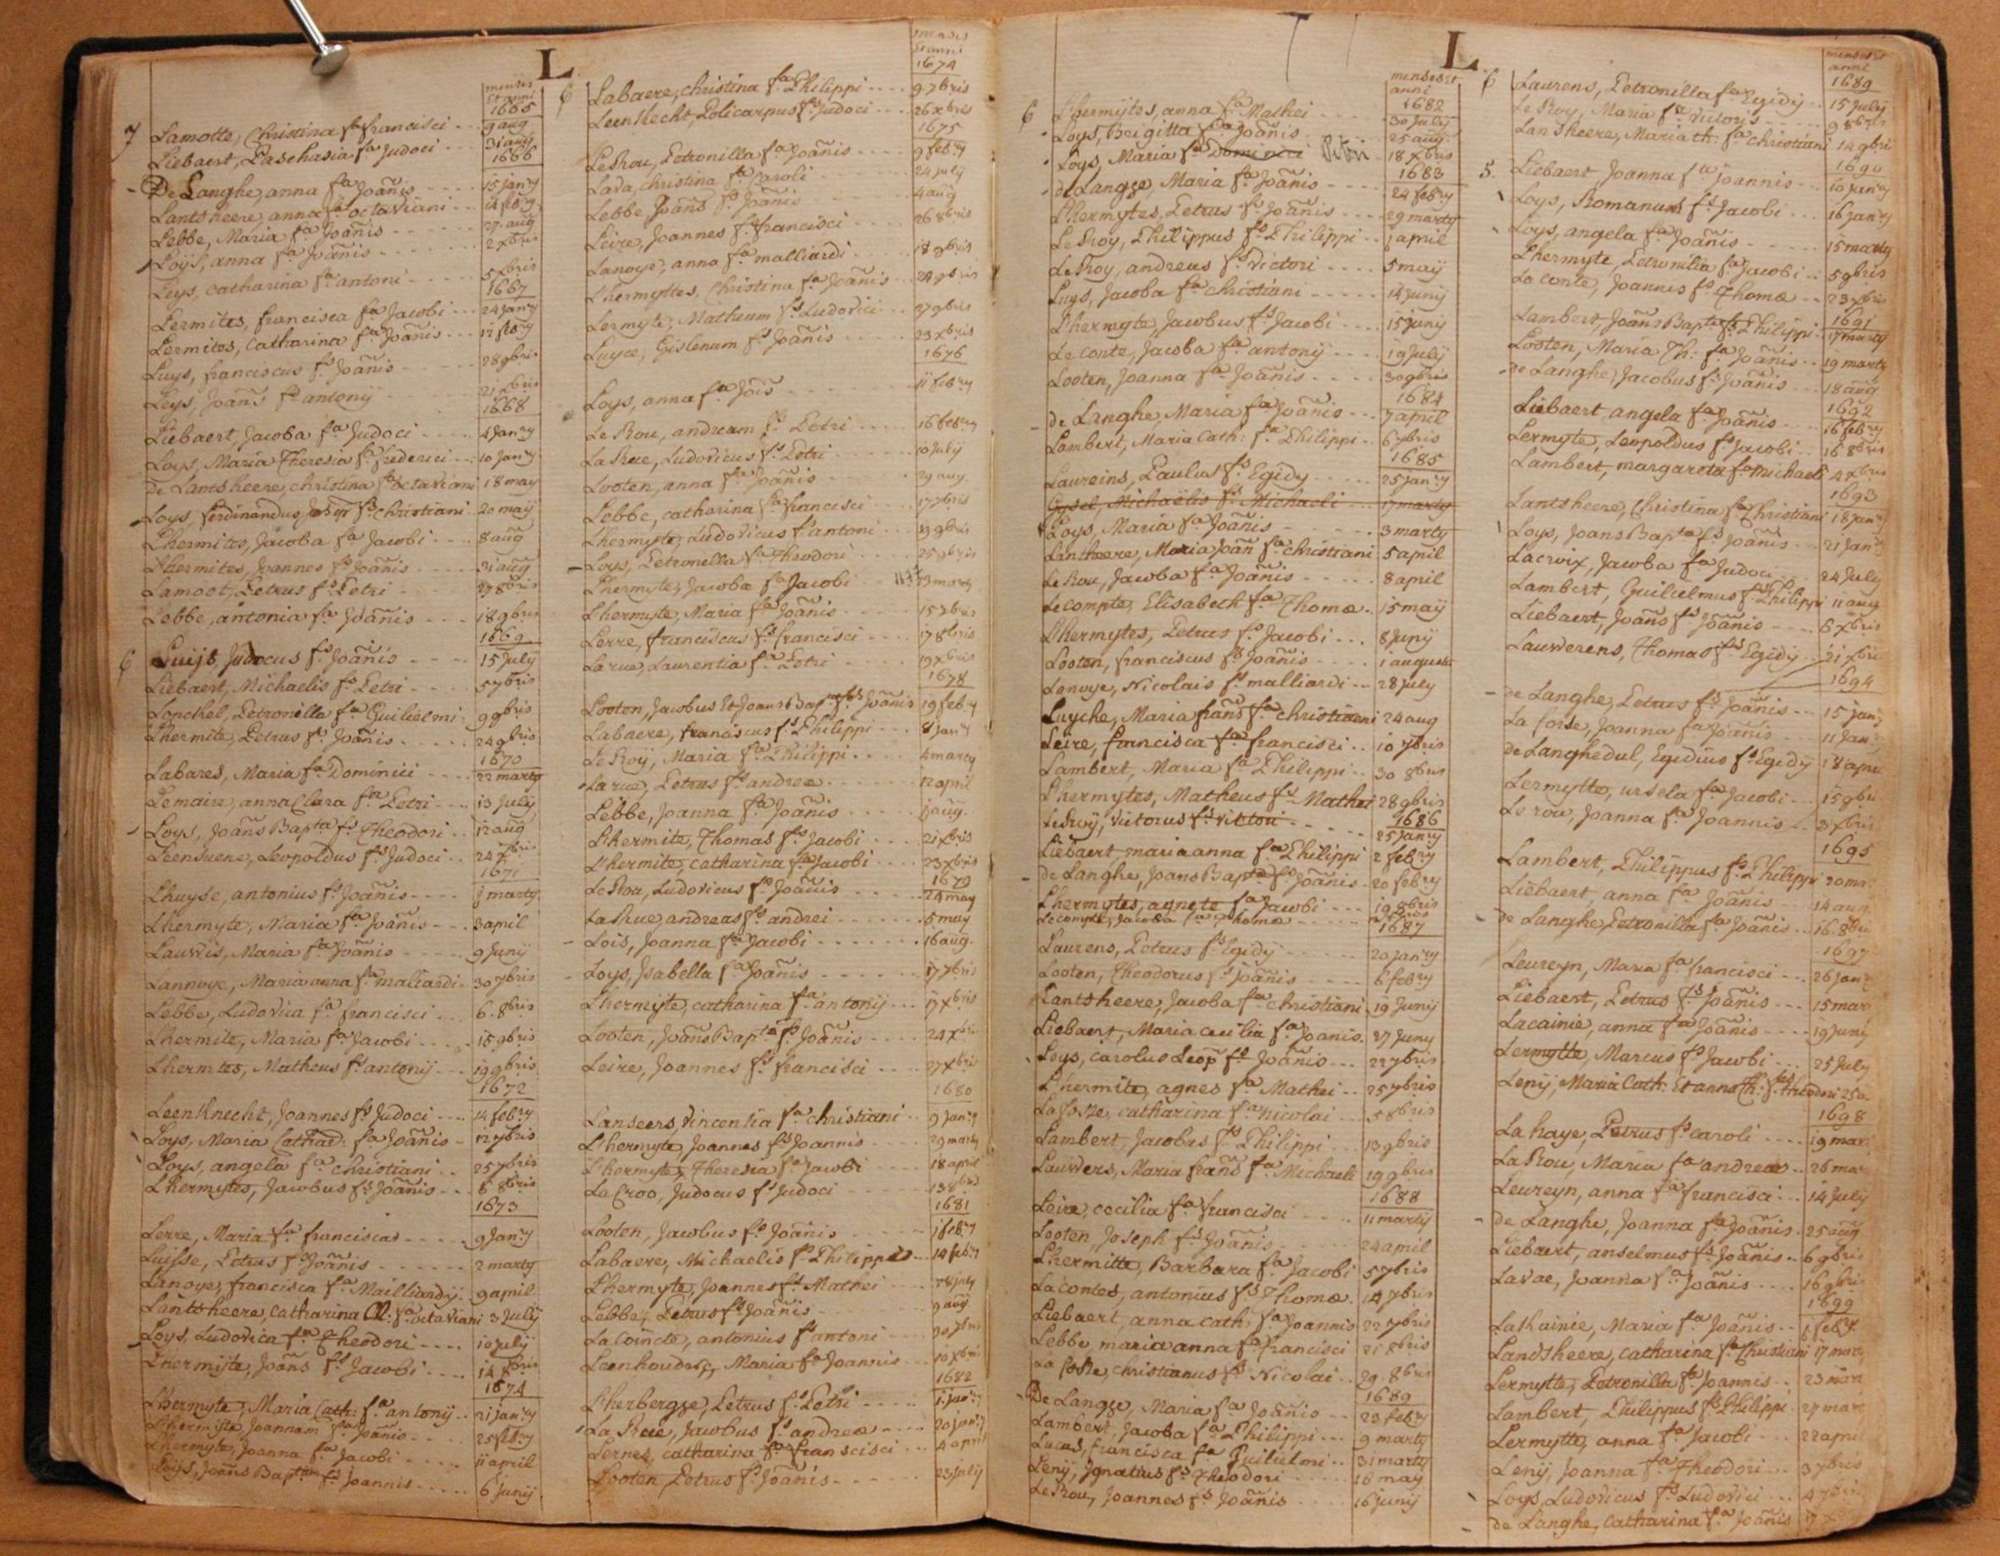 L
menses
et anni
1665
7 Lamotte, Christina fa francisci 9 aug
Liebaert, Paschasia fa Judoci 31 aug
1666
De Langhe, anna fa Joãnis 15 janry
Lantsheere, anna fa octaviani 14 febry
Lebbe, Maria fa Joãnis 27 aug
Loÿs, anna fa Joãnis 2 xbris
Leys, catharina fa antoni 5 xbris
1667
Lermites, francisca fa Jacobi 24 janry
Lermites, catharina fa Joãnis 12 febry
Luys, franciscus fs Joãnis 28 9bris
Leys, Joãns fs antony 21 xbris
1668
Liebaert, Jacoba fa Judoci 4 Janry
Loys, Maria Theresia fa frederici 10 Janry
de Lantsheere christina fa octaviani 18 may
Loys, ferdinandus fs christiani 20 maÿ
Lhermites, Jacoba fa Jacobi 8 aug
Lhermites, Joannes fs Joãnis 31 aug
Lamoot, Petrus fs Petri 27 8bris
Lebbe, antonia fa Joãnis 18 9bris
1669
6 Luijs, Judocus fs Joãnis 15 July
Liebaert, Michaelis fs Petri 5 7bris
Lonckel, Petronilla fa Guilielmi 9 9bris
Lhermite, Petrus fs Joãnis 24 9bris
1670
Labares, Maria fa Dominici 22 martÿ
Lemaire, anna Clara fa Petri 13 July
Loys, Joãns Bapta fs Theodori 12 aug
Leensuene, Leopoldus fs Judoci 24 xbris
1671
Lhuyse, antonius fs Joãnis 7 marty
Lhermyte, Maria fa Joãnis 3 april
Lauwis, Maria fa Joãnis 9 Junÿ
Lannoye, Maria anna fa maliardi 30 7bris
Lebbe, Ludovica fa francisci 6 8bris
Lhermite, Maria fa Jacobi 15 9bris
Lhermites, Matheus fs antonij 19 9bris
1672
Leenknecht, Joannes fs Judoci 14 febry
Loys, Maria Cathar: fa Joãnis 12 7bris
Loys, angela fa christiani 25 7bris
Lhermytes, Jacobus fs Joãnis 6 8bris
1673
Lerre, Maria fa franciscas 9 Janry
Luisse, Petrus fs Joãnis 2 marty
Lanoye, francisca fa Mailliardy 9 april
Lantsheere, catharina fa octaviani 3 July
Loys, Ludovica fa Theodori 10 july
Lhermyte, Joãns fs Jacobi 14 8bris
1674
Lhermyte, Maria Cath: fa antonij 21 janry
Lhermyte Joannem fs Joãnis 25 febry
Lhermyte, Joanna fa Jacobi 11 april
Loys, Joãns Baptam fs Joannis 6 Junij
menses
et anni
1674
6 Labaere, christina fa Philippi 9 7bris
Leenknecht, Policarpus fs Judoci 26 xbris
1675
LeRou, Petronilla fa Joãnis 9 febry
Lada, christina fa Caroli 24 july
Lebbe Joãns fs Joãnis 4 aug
Leire, Joannes fs francisci 26 8bris
Lanoye, anna fa malliardi 18 9bris
Lhermyttes, Christina fa Joãnis 24 9bris
Lermyte, Matheum fs Ludovici 27 9bris
Luyce, Gislenum fs Joãnis 23 xbris
1676
Loys, anna fa Jois 11 febry
Le Rou, andream fs Petri 16 febry
La Rue, Ludovicus fs Petri 10 July
Looten, anna fa Joãnis 29 aug
Lebbe, catharina fa francisci 17 7bris
Lhermyte, Ludovicus fs antoni 19 9bris
Loys, Petronella fa Theodori 25 9bris
Lhermyte, Jacoba fa Jacobi 1677 13 marty
Lhermyte, Maria fa Joãnis 15 7bris
Lerre, franciscus fs francisci 17 8bris
La rue, Laurentia fa Petri 19 xbris
1678
Looten, Jacobus Et Joans Bap fs Joãnis 19 febry
Labaere, franciscus fs Philippi 8 jan
Le Roij, Maria fa Philippi 4 marty
La rue, Petrus fs andreæ 12 april
Lebbe, Joanna fa Joãnis 1 aug.
Lhermite, Thomas fs Jacobi 21 xbris
Lhermite, catharina fa Jacobi 23 xbris
1679
Le Rou, Ludovicus fs Joãnis 24 may
La Rue, andreas fs andrei 5 may
Lois, Joanna fa Jacobi 16 aug.
Loys, Isabella fa Joãnis 17 7bris
Lhermyte, catharina fa antonij 17 xbris
Looten, Joãns Bapta fs Joãnis 24 xbris
Leire, Joannes fs francisci 27 xbris
1680
Lanseers, vincentia fa christiani 9 Janry
Lhermyte, Joannes fs Joannis 29 marty
Lhermyte, Theresia fa Jacobi 18 april
La Croo, Judocus fs Judoci 13 8bris
1681
Looten, Jacobus fs Joãnis 1 febry
Labaere, Michaelis fs Philippi 14 febry
Lhermyte, Joannes fs Mathei 28 july
Lebbe, Petrus fs Joãnis 9 aug
La Coincte, antonius fs antoni 30 7bris
Leenhouder, Maria fa Joannis 10 xbris
1682
Lherbergse, Petrus fs Petri 1 janry
La Rue, Jacobus fs andreæ 20 janry
Lernes, catharina fa franscisci 4 april
Looten, Petrus fs Joãnis 23 july
L
menses et
anni
1682
6 Lhermytes, anna fa Mathei 30 July
Loys, Brigitta fa Joãnis 25 aug
Loys Maria fa Dominici Petri 18 xbris
1683
de Langze Maria fa Joãnis 24 febry
Lhermytes, Petrus fs Joãnis 29 marty
Le Roy, Philippus fs Philippi 1 april
Le Roy, andreus fs victori 5 may
Luys, Jacoba fa christiani 14 junij
Lhermyte, Jacobus fs Jacobi 15 Junij
Le conte, Jacoba fa antonij 19 July
Looten, Joanna fa Joãnis 30 9bris
1684
de Langhe, Maria fa Joãnis 7 april
Lambert, Maria Cath: fa Philippi 6 7bris
1685
Laureins, Paulus fs Egidy 25 janry
Gysel, Michaëlis fs Michaeli 17 marty
Loys, Maria fa Joãnis 3 marty
Lantheere, Maria Joan fa christiani 5 april
Le Rou, Jacoba fa Joãnis 8 april
Lecompte, Elisabeth fa Thomæ 15 maÿ
Lhermytes, Petrus fs Jacobi 8 Juny
Looten, franciscus fs Joãnis 1 augusti
Lanoye, Nicolais fs malliardi 28 july
Luycke, Maria frans fa christiaeni 24 aug
Leire, francisca fa francisci 10 7bris
Lambert, Maria fa Philippi 30 8bris
Lhermytes, Matheus fs Mathei 28 9bris
1686
Le Roij, victorus fs victori 25 janry
Liebaert maria anna fa Philippi 2 febry
de Langhe, Joans Bapta fs Joãnis 20 febry
Lhermytes, agnete fa Jacobi 19 8bris
Lecompte, Jacoba fa Thomæ
1687
Laurens, Petrus fs Egidij 20 janry
Looten, Theodorus fs Joãnis 6 febry
Lantsheere, Jacoba fa christiani 19 Junij
Liebaert, Maria cecilia fa Joanis 27 Juny
Loys, carolus Leop fs Joãnis 22 7bris
Lhermite, agnes fa Mathei 25 7bris
La fosse, catharina fa nicolai 5 8bris
Lambert, Jacobus fs Philippi 13 9bris
Lauwers, Maria frans fa Michaeli 19 9bris
1688
Leire, cecilia fa francisci 11 marty
Looten, Joseph fs Joãnis 24 april
Lhermitte, Barbara fa Jacobi 5 7bris
La contes, antonius fs Thomæ 14 7bris
Liebaert, anna cath: fa Joannis 22 7bris
Lebbe maria anna fa francisci 21 8bris
La fosse, christianus fs Nicolai 29 8bris
1689
De Langze, Maria fa Joãnis 23 febry
Lambert, Jacoba fa Philippi 9 marty
Lucas, francisca fa Guilielmi 31 marty
Lenij, Ignatius fs Theodori 16 may
Le Rou, Joannes fs Joãnis 16 junij
menses et
anni
1689
6 Laurens, Petronilla fa Egidij 15 Julÿ
Le Roy, Maria fa victoris 9 8bris
Lansheere, Maria th: fa christiani 14 9bri
1690
5. Liebaert Joanna fa Joannis 10 janry
Loys, Romanus fs Jacobi 16 janry
Loys, angela fa Joãnis 15 marty
Lhermyte Petronilla fa Jacobi 5 9bris
La conte, Joannes fs Thomæ 23 xbris
1691
Lambert, Joãns Bapta fs Philippi 17 marty
Looten, Maria Th: fa Joãnis 19 marty
de Langhe, Jacobus fs Joãnis 18 aug
1692
Liebaert angela fa Joãnis 16 febry
Lermyte, Leopoldus fs Jacobi 16 8bris
Lambert, margareta fa Michaeli 4 xbris
1693
Lantsheere, Christina fa Christiani 18 Janry
Loys, Joans Bapta fs Joãnis 21 Janry
Lacroix, Jacoba fa Judoci 24 July
Lambert, Guilielmus fs Philippi 11 aug
Liebaert, Joãns fs Joãnis 6 xbris
Lauwerens, Thomas fs Egidij 21 xbris
1694
de Langhe, Petrus fs Joãnis 15 jan
La fosse, Joanna fa Joãnis 11 Jan
de Langhedul, Egidius fs Egidij 18 april
Lermytte, ursela fa Jacobi 15 9bri
Le rou, Joanna fa Joannis 3 xbris
1695
Lambert, Philippus fs Philippi 20 mar
Liebaert, anna fa Joãnis 14 aug
de Langhe, Petronilla fa Joãnis 16 8bris
1697
Leureyn, Maria fa francisci 26 jan
Liebaert, Petrus fs Joãnis 15 mar
Lacainie, anna fa Joãnis 19 Junij
Lermytte, Marcus fs Jacobi 25 July
Lenij, Maria Cath: Et anna Th: Theodori 25 a
1698
La haye, Petrus fs caroli 19 mar
La Rou, Maria fa andreæ 26 mar
Leureyn, anna fa francisci 14 July
de Langhe, Joanna fa Joãnis 25 aug
Liebaert, anselmus fs Joãnis 6 9bris
Lavae, Joanna fa Joãnis 16 9bris
1699
Lakainie, Maria fa Joãnis 1 feb
Landsheere, catharina fa Christiani 17 mar
Lermytte, Petronilla fa Joannis 23 mar
Lambert, Philippus fs Philippi 27 mar
Lermytte, anna fa Jacobi 22 april
Lenij, Joanna fa Theodori 3 7bris
Loys, Ludovicus fs Ludovici 4 7bris
de Langhe, catharina fa Joãnis 17